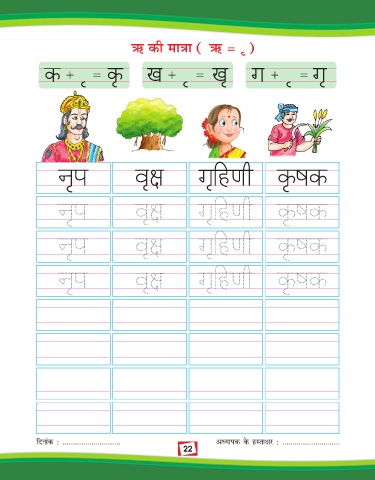 ऋ की मात्रा ( ऋ = ृ )
क + ृ = कृ ख + ृ = खृ ग + ृ = गृ
नृप वृक्ष गृहिणी कृषक
नृप वृक्ष गृहिणी कृषक
नृप वृक्ष गृहिणी कृषक
नृप वृक्ष गृहिणी कृषक
दिनांक : ............................ अध्यापक के हस्ताक्षर : ............................
22